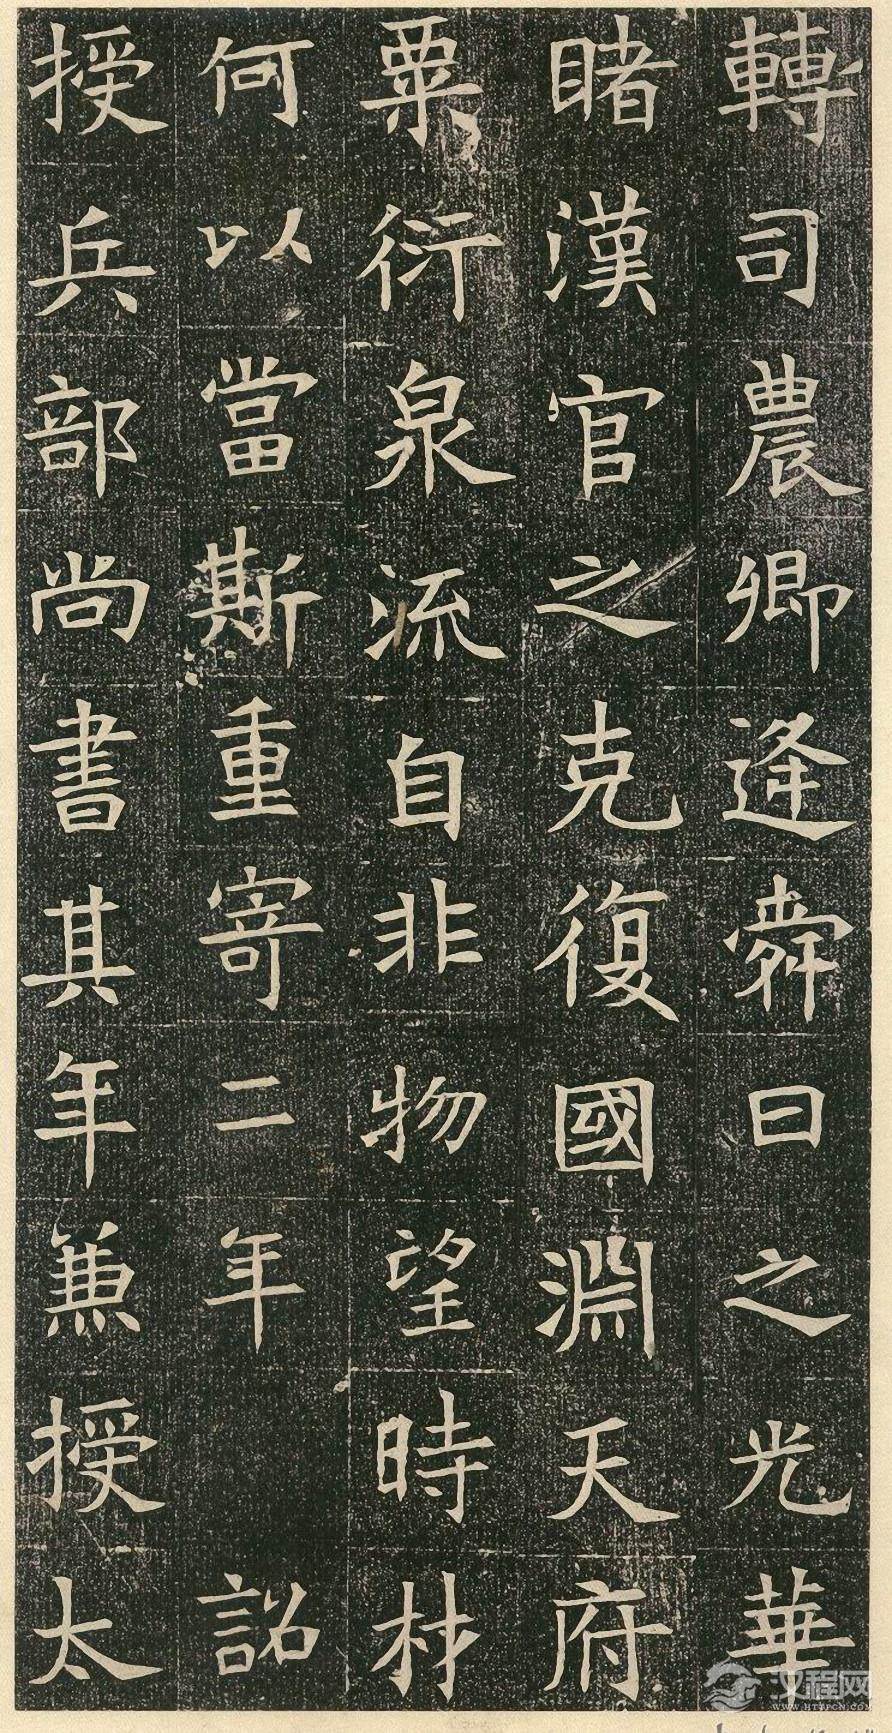 轉司農卿逢舜日之光華
睹漢官之克復國淵天府
粟衍泉流自非物望時材
何以當斯重寄二年詔
授兵部尚書其年兼授太
汉程网
WWW.HTTPCN.COM